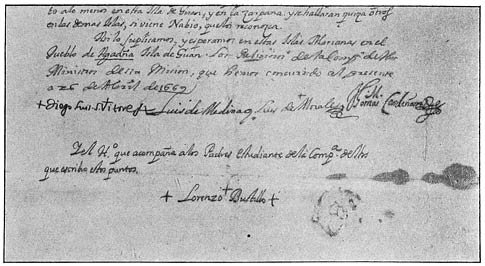 to alo menos en esta Isla de Guan, y en la Zarpana. y se hallaran quiça otros
en las demas Islas, si viene Nabio, que los reconozca.
Assi lo suplicamos, y esperamos en estas Islas Marianas en el
Pueblo de Agadña Isla de Guan. Los Religiosos de la Comp.ª de
Ministros de esta Mission, que hemos concurrido al presente
a 26 de Abril de 1669
+ Diego Luis S.Vitores + Luis de Medina Luis de Morales Thomas Cardeñoso
Y el H.º que acompaña a los Padres Estudiante de la Comp.ª de
que escribio estos puntos.
+ Lorenzo + Bustillo +